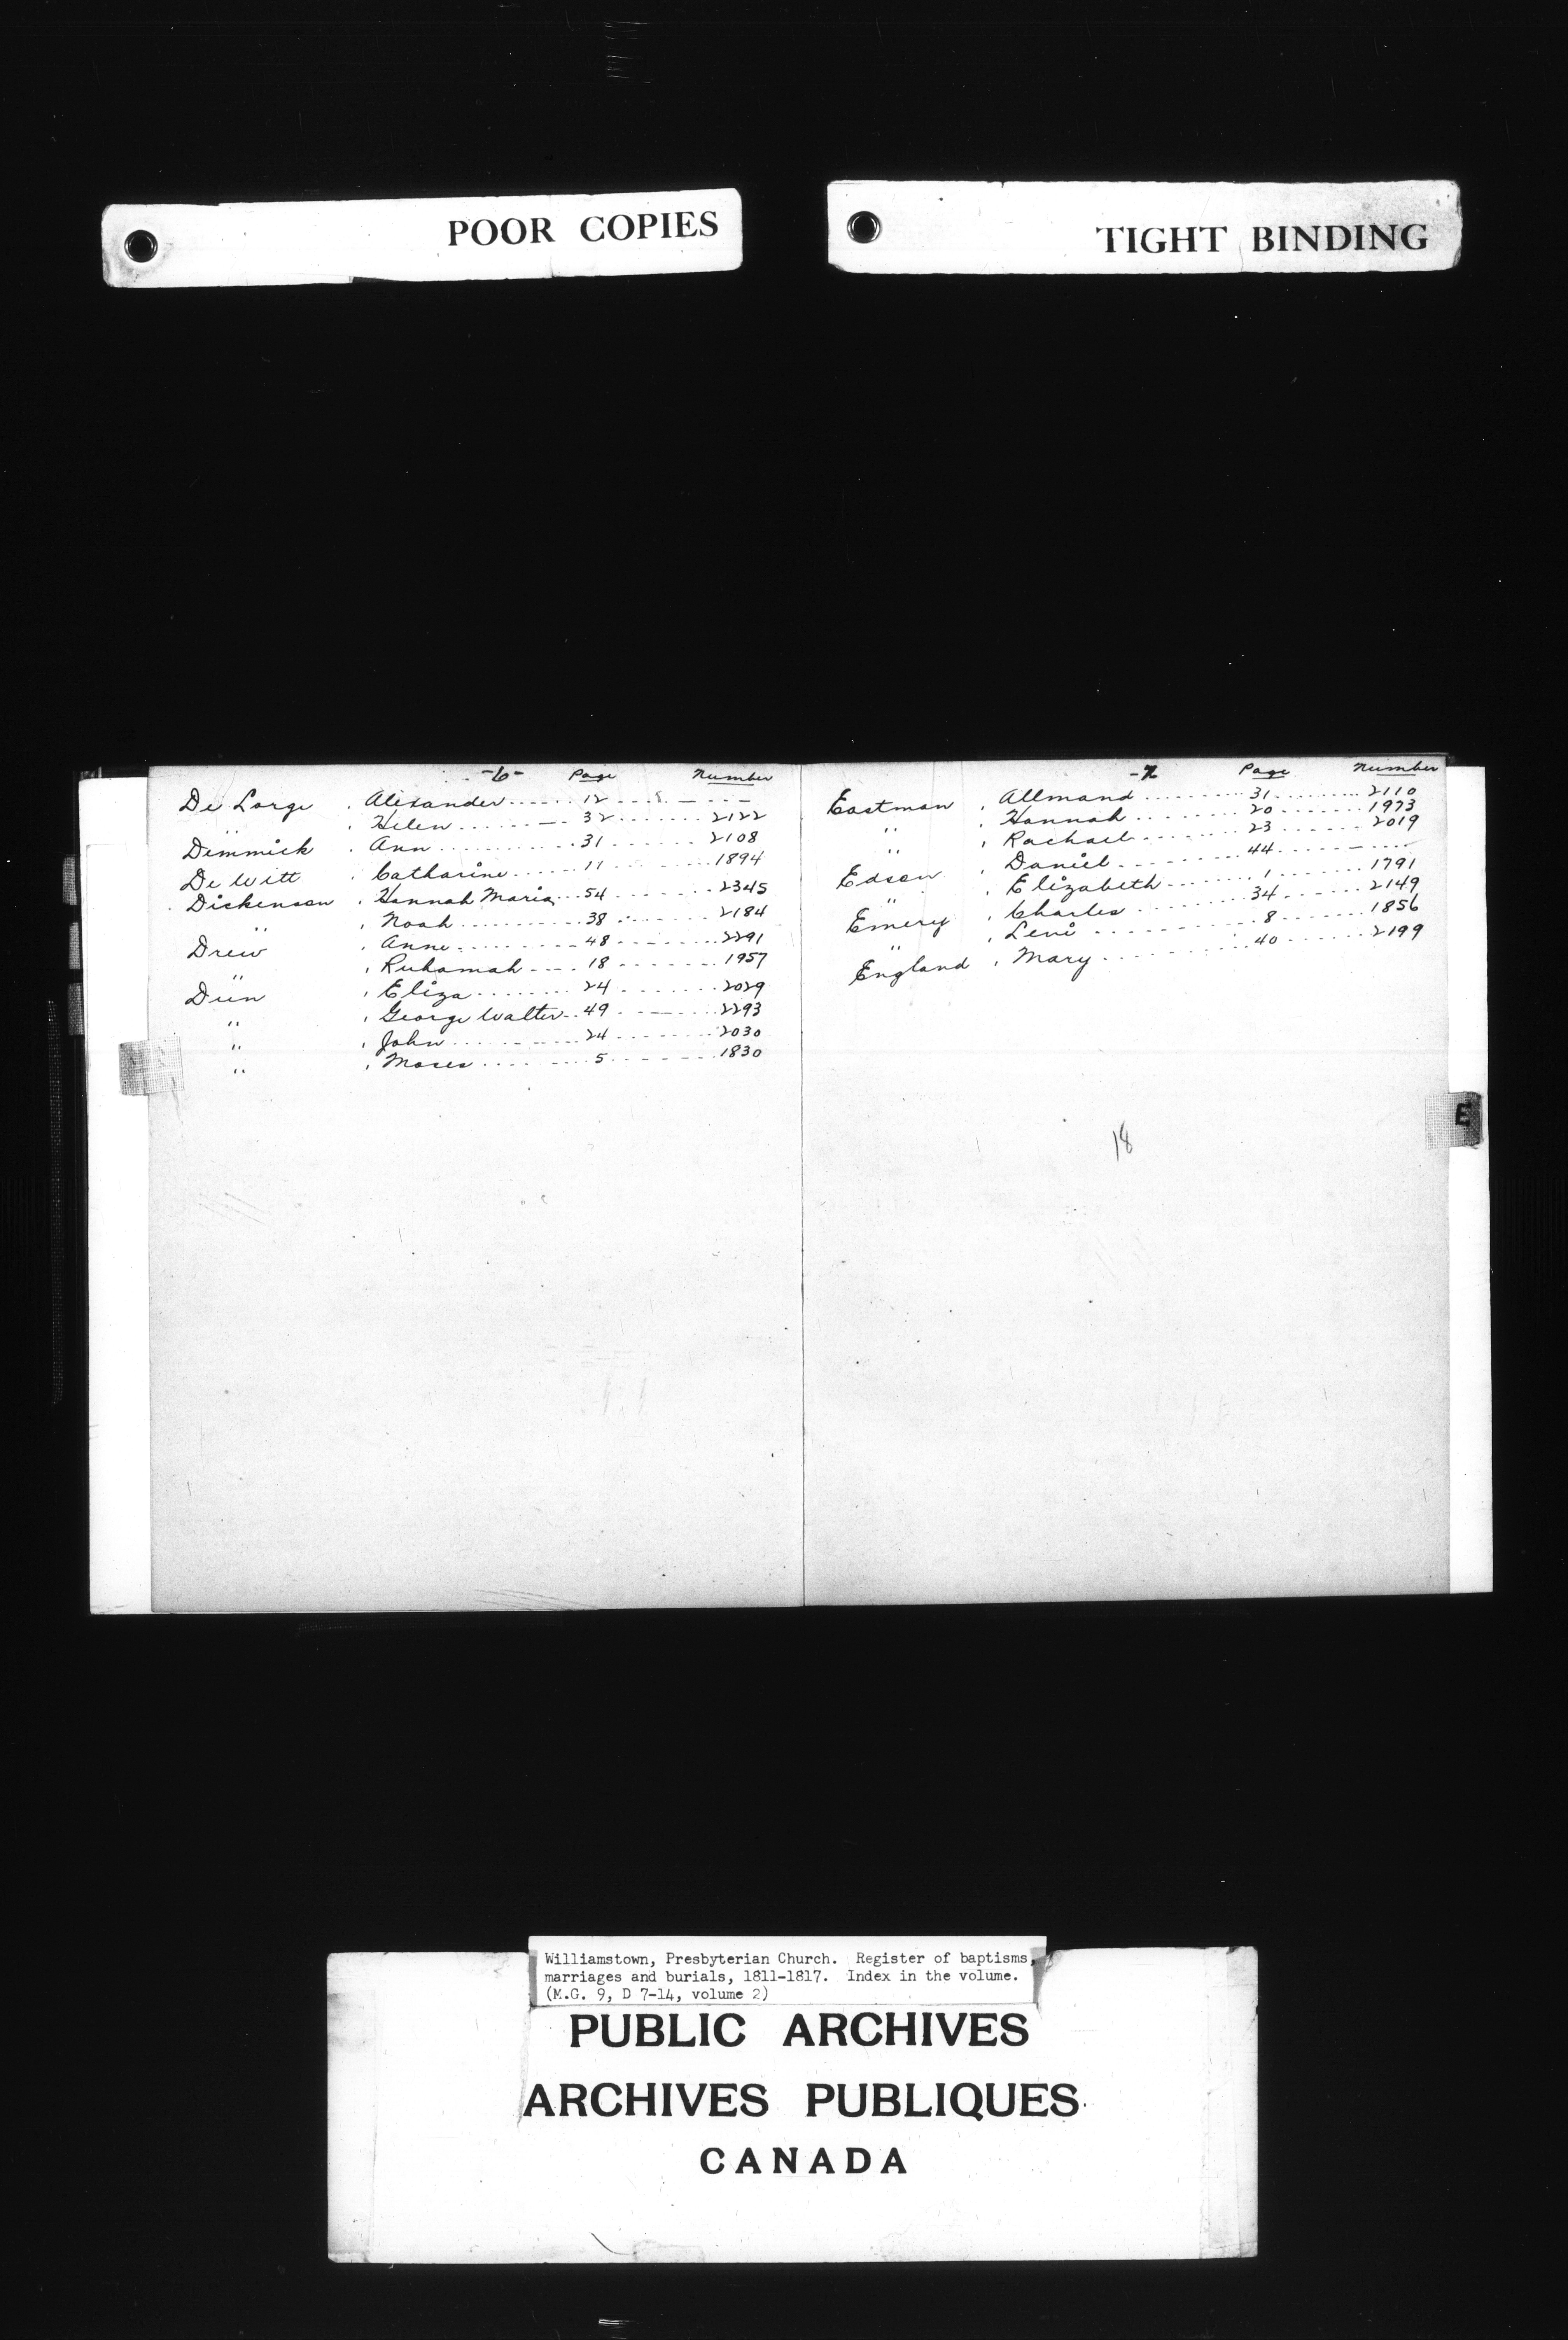 POOR COPIES
TIGHT BINDING
-6- Page Number
De Lorge , Alexander ........ 12 .... - - -
" , Helen ........ 32 ........ 2122
Dimmick , Ann ........ 31 ........ 2108
De Witt , Catharine ........ 11 ........ 1894
Dickenson , Hannah Maria ... 54 ........ 2345
" , Noah ........ 38 ........ 2184
Drew , Anne ........ 48 ........ 2291
" , Ruhamah ---- 18 ........ 1957
Dun , Eliza ........ 24 ........ 2029
" , George Walter .. 49 ........ 2293
" , John ........ 24 ........ 2030
" , Moses ........ 5 ........ 1830
-7- Page Number
Eastman , Allmand ........ 31 ........ 2110
" , Hannah ........ 20 ........ 1973
" , Rachael ........ 23 ........ 2019
Edson , Daniel ........ 44 ........
" , Elizabeth ........ 1 ........ 1791
Emery , Charles ........ 34 ........ 2149
" , Levi ........ 8 ........ 1856
England , Mary ........ 40 ........ 2199
E
18
Williamstown, Presbyterian Church. Register of baptisms,
marriages and burials, 1811-1817. Index in the volume.
(M.G. 9, D 7-14, volume 2)
PUBLIC ARCHIVES
ARCHIVES PUBLIQUES
CANADA